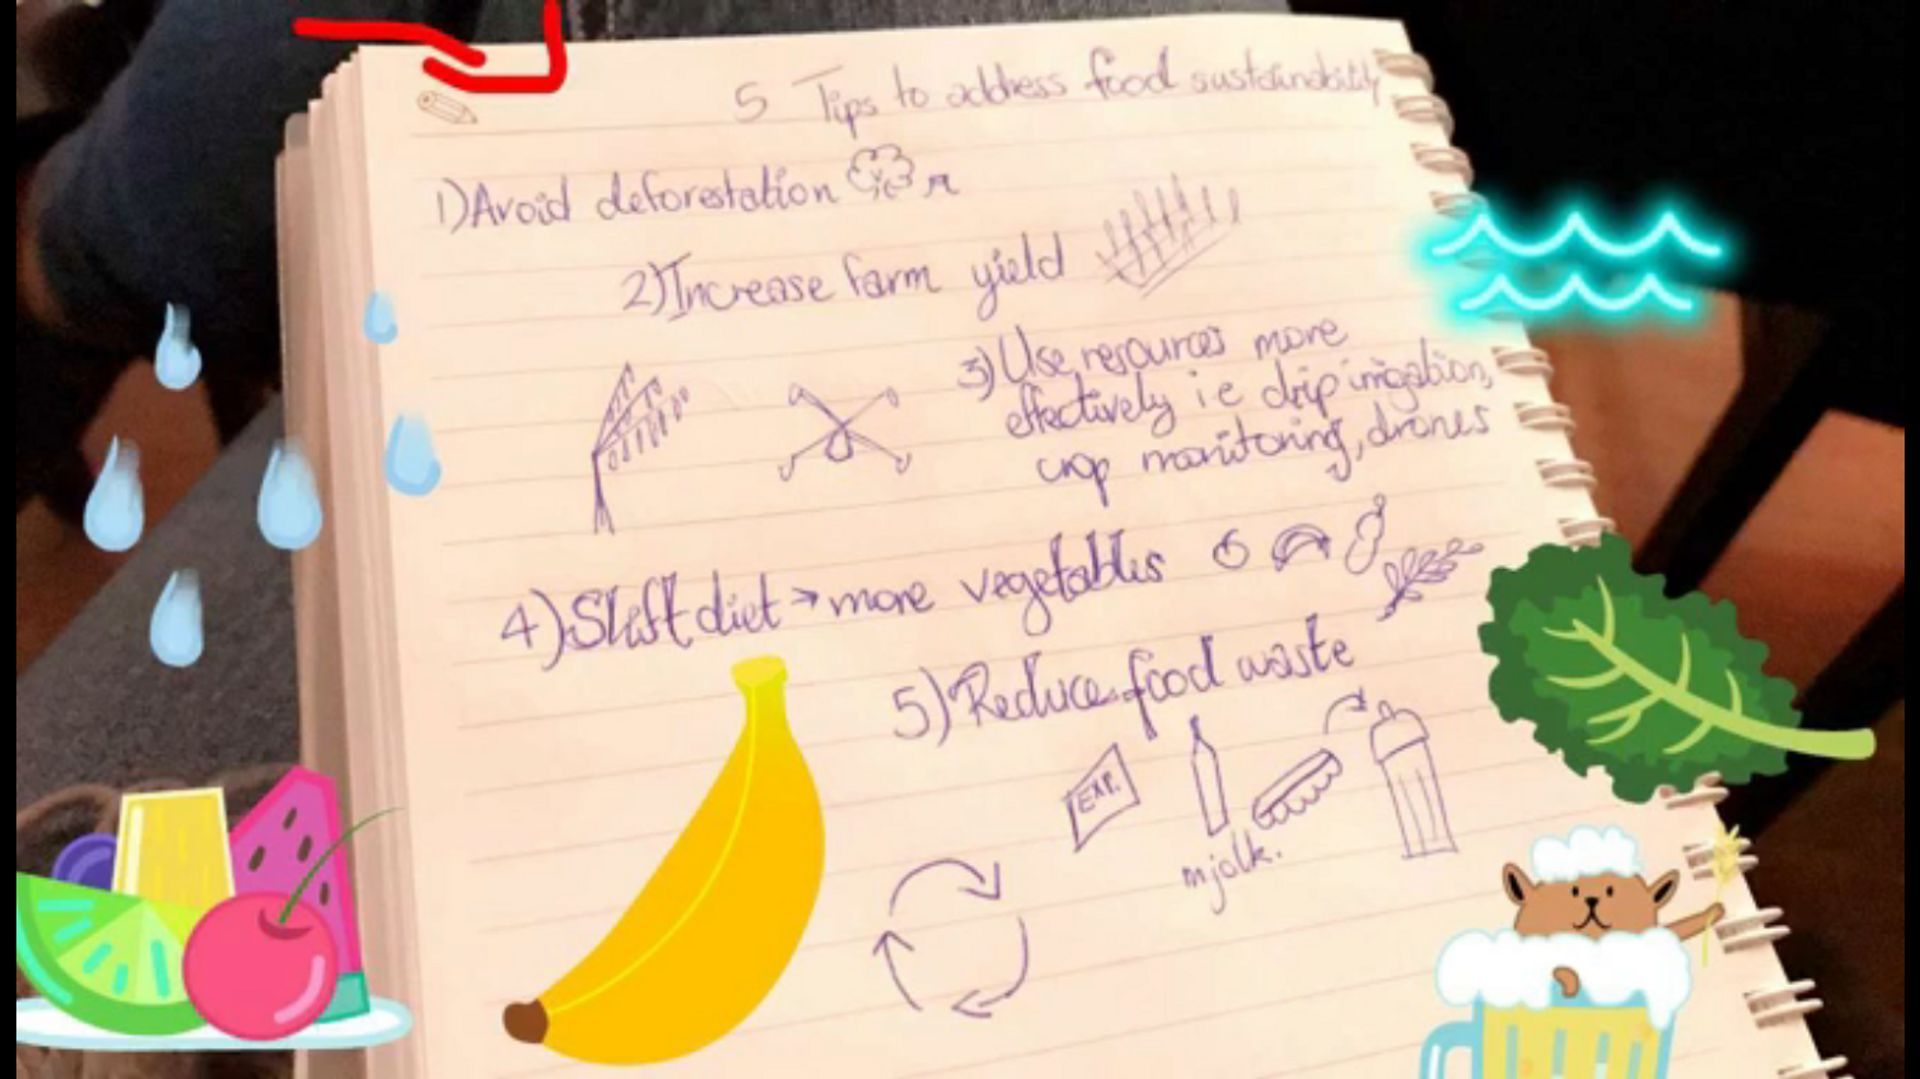 5 Tips to address food sustainability
1) Avoid deforestation
2) Increase farm yield
3) Use resources more
effectively i e drip irrigation,
crop monitoring, drones
4) Shift diet → more vegetables
5) Reduce food waste
EXP.
mjolk.